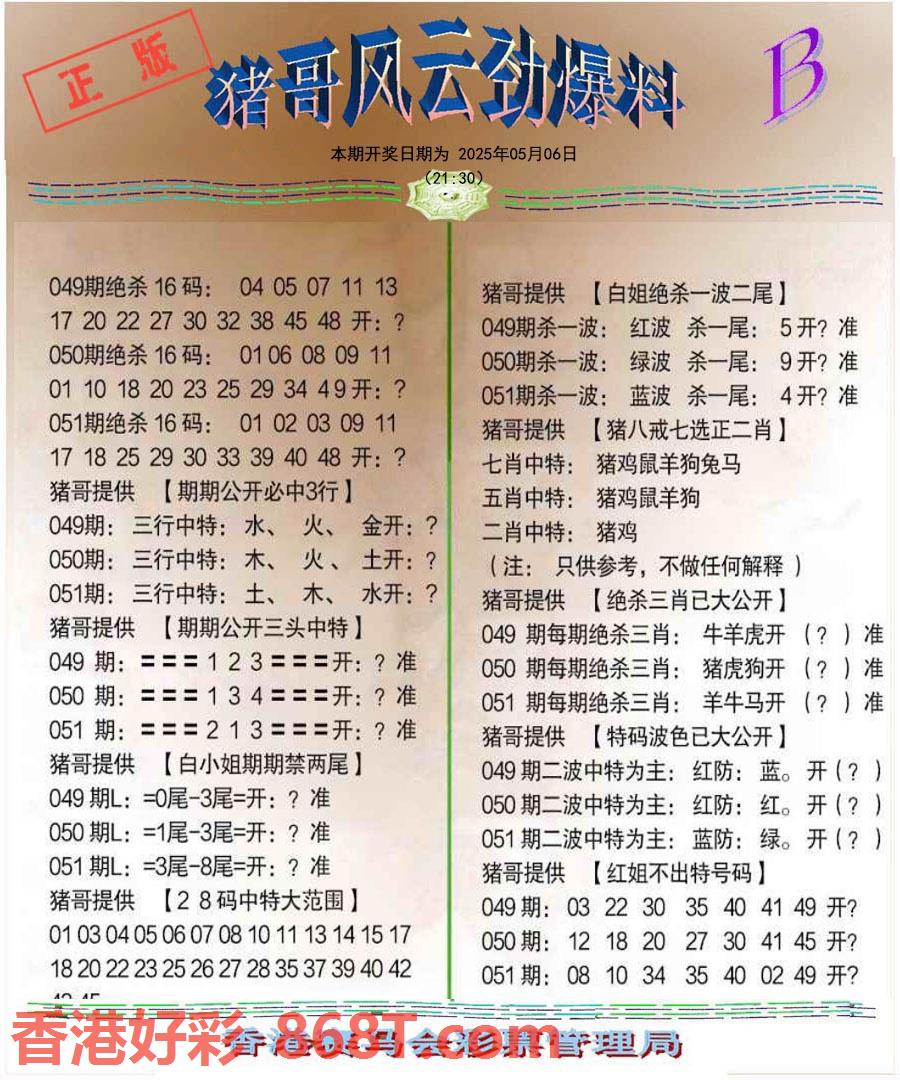 正版
猪哥风云劲爆料
B
本期开奖日期为 2025年05月06日
(21:30)
049期绝杀 16 码： 04 05 07 11 13
17 20 22 27 30 32 38 45 48 开：?
050期绝杀 16 码： 01 06 08 09 11
01 10 18 20 23 25 29 34 4 9 开：?
051期绝杀 16 码： 01 02 03 09 11
17 18 25 29 30 33 39 40 48 开：?
猪哥提供 【期期公开必中3行】
049期： 三行中特： 水、 火、 金开：?
050期： 三行中特： 木、 火、 土开：?
051期： 三行中特： 土、 木、 水开：?
猪哥提供 【期期公开三头中特】
049 期：===1 2 3===开：? 准
050 期：===1 3 4===开：? 准
051 期：===2 1 3===开：? 准
猪哥提供 【白小姐期期禁两尾】
049 期L：=0尾-3尾=开：? 准
050 期L：=1尾-3尾=开：? 准
051 期L：=3尾-8尾=开：? 准
猪哥提供 【2 8 码中特大范围】
01 03 04 05 06 07 08 10 11 13 14 15 17
18 20 22 23 25 26 27 28 35 37 39 40 42
猪哥提供 【白姐绝杀一波二尾】
049期杀一波： 红波 杀一尾： 5 开? 准
050期杀一波： 绿波 杀一尾： 9 开? 准
051期杀一波： 蓝波 杀一尾： 4 开? 准
猪哥提供 【猪八戒七选正二肖】
七肖中特： 猪鸡鼠羊狗兔马
五肖中特： 猪鸡鼠羊狗
二肖中特： 猪鸡
（注： 只供参考，不做任何解释 ）
猪哥提供 【绝杀三肖已大公开】
049 期每期绝杀三肖： 牛羊虎开 （?）准
050 期每期绝杀三肖： 猪虎狗开 （?）准
051 期每期绝杀三肖： 羊牛马开 （?）准
猪哥提供 【特码波色已大公开】
049 期二波中特为主： 红防： 蓝。 开（? ）
050 期二波中特为主： 红防： 红。 开（? ）
051 期二波中特为主： 蓝防： 绿。 开（? ）
猪哥提供 【红姐不出特号码】
049 期： 03 22 30 35 40 41 49 开?
050 期： 12 18 20 27 30 41 45 开?
051 期： 08 10 34 35 40 02 49 开?
香港好彩 868T.com